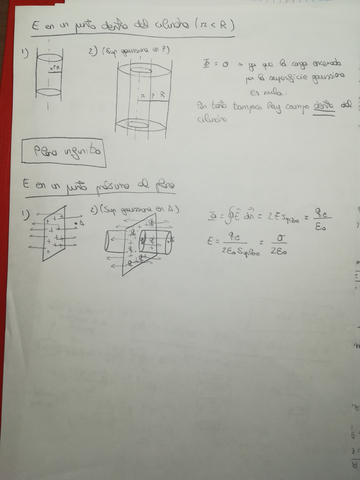 E en un punto dentro del cilindro (r < R)
1)
2) (Sup gaussiana en P)
Φ = 0 → ya que la carga encerrada
por la superficie gaussiana
es nula.
Por tanto tampoco hay campo dentro del
cilindro
Plano infinito
E en un punto próximo al plano
1)
2) (Sup gaussiana en A)
Φ = ∮E dā = 2E Splano = qe / ε0
E = qe / 2ε0 Splano = σ / 2ε0